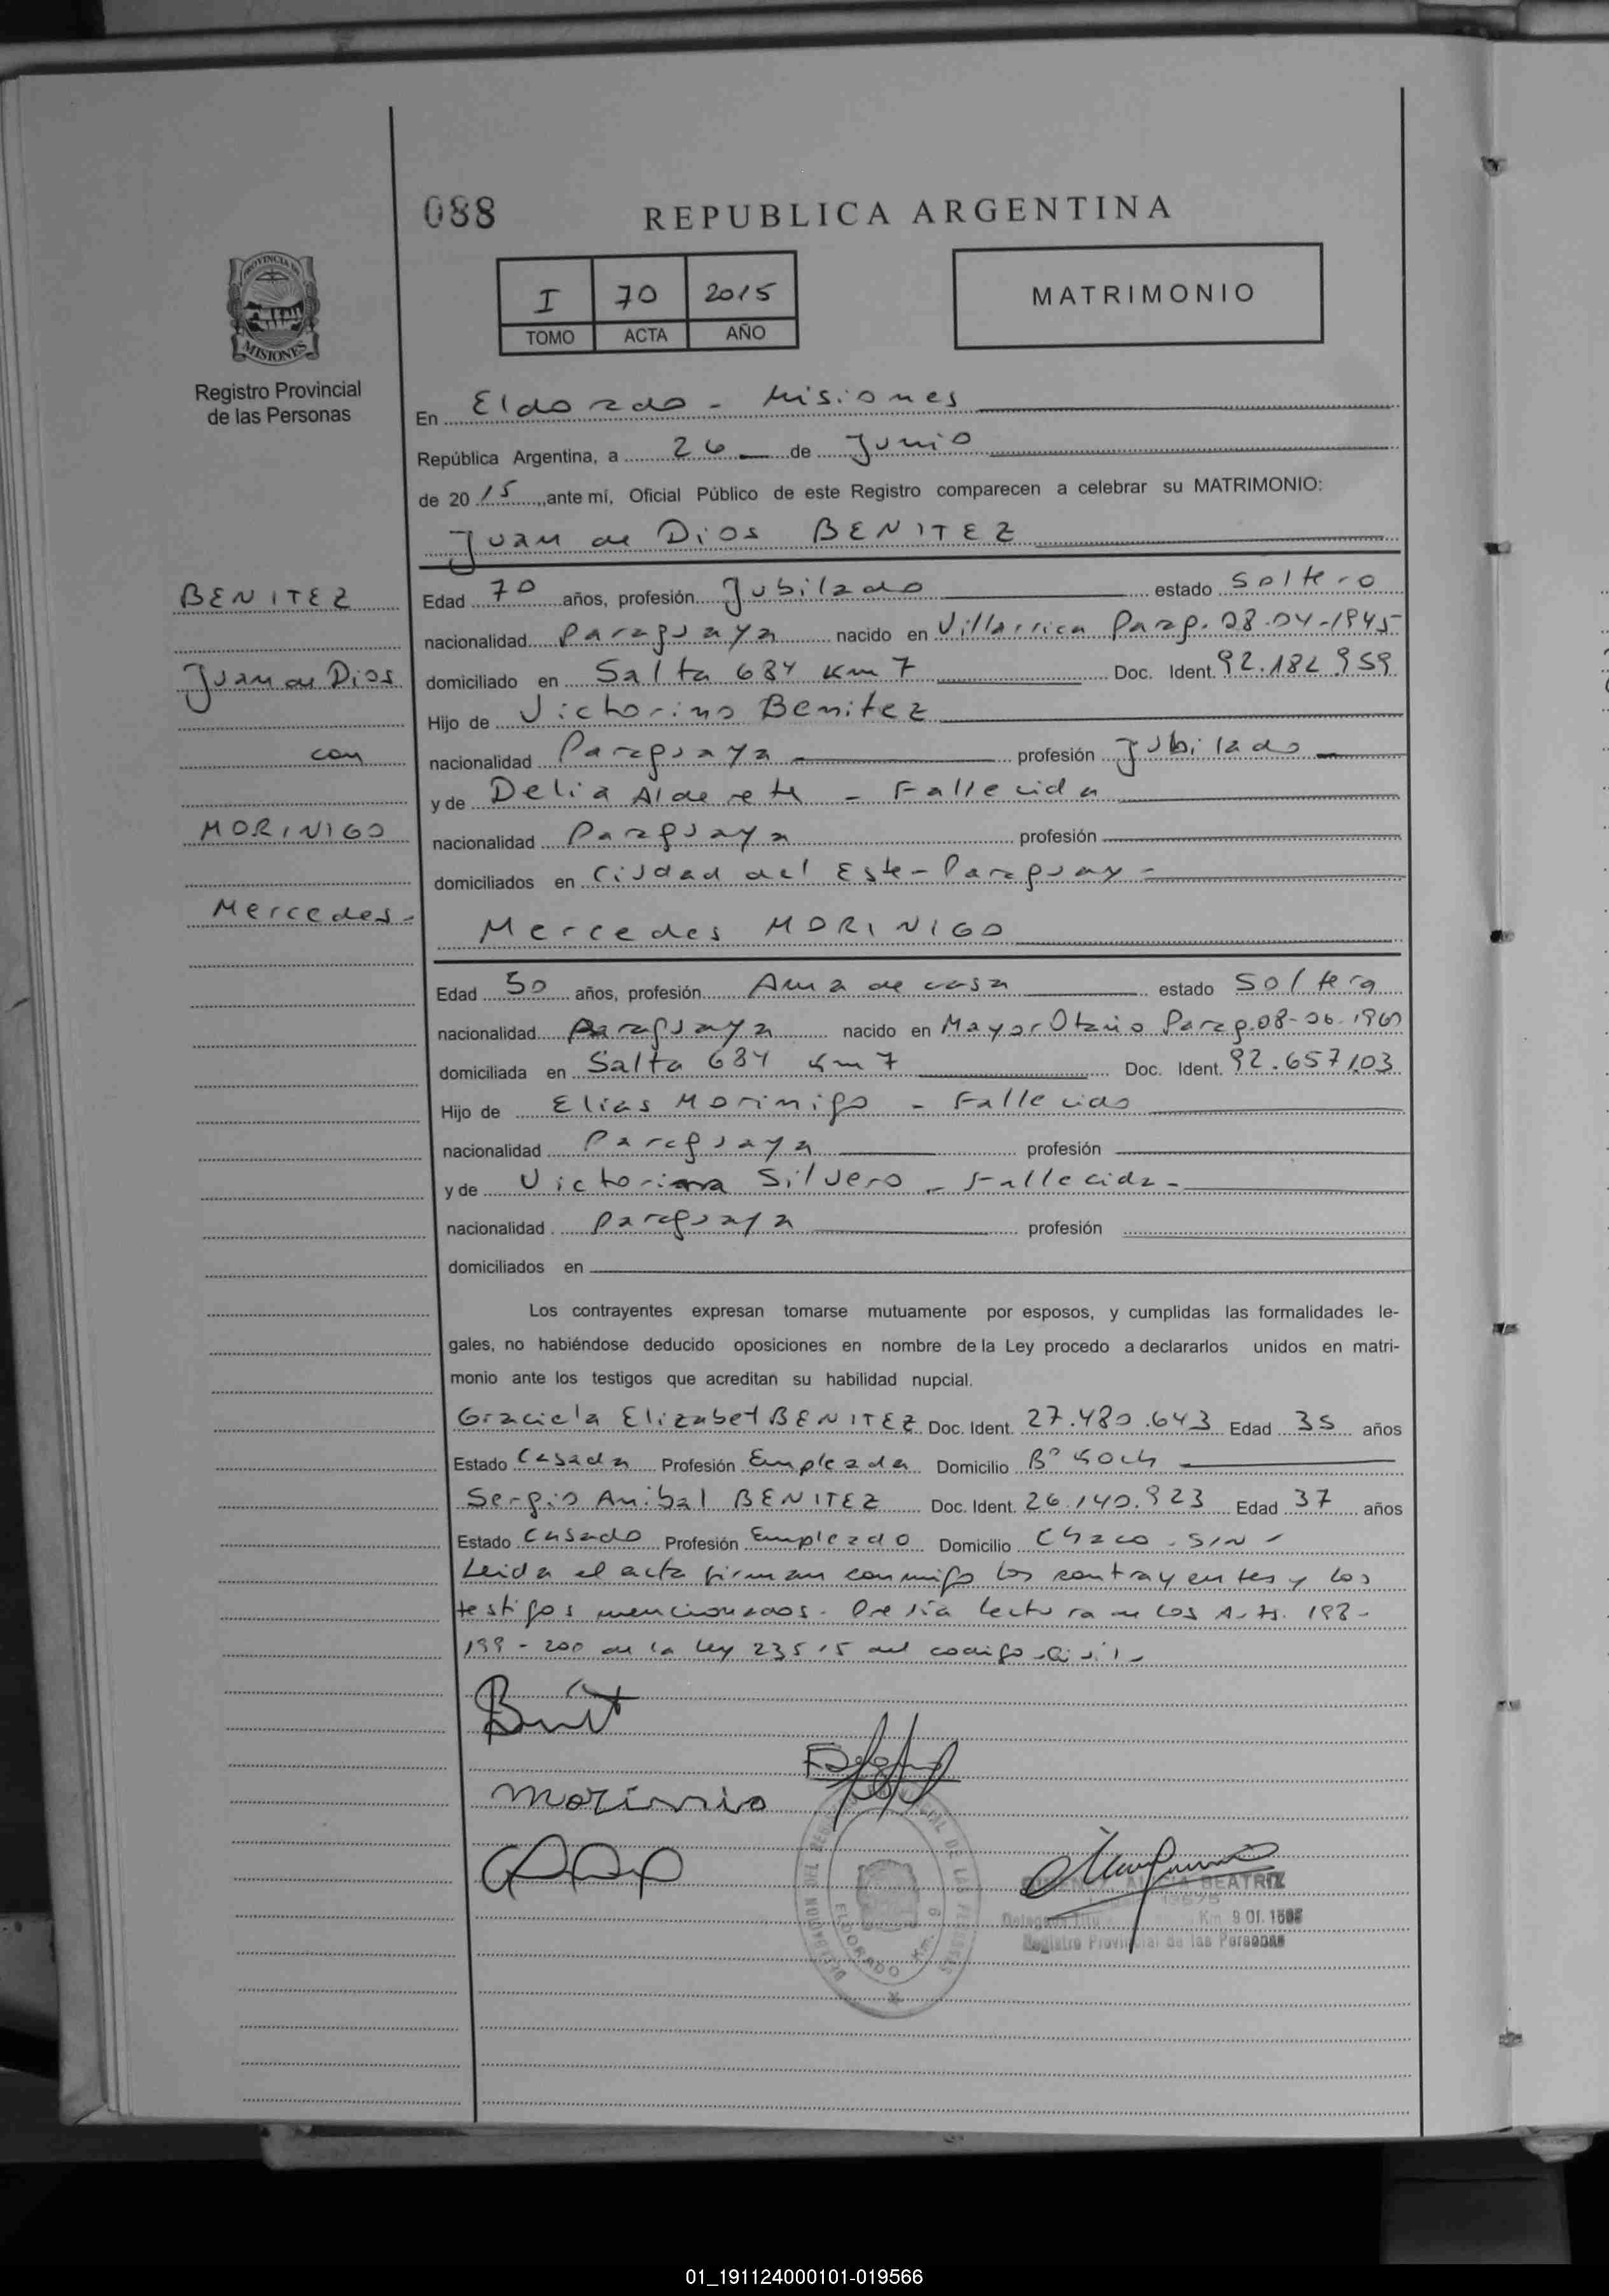 088
REPUBLICA ARGENTINA
PROVINCIA DE
MISIONES
Registro Provincial
de las Personas
I 70 2015
TOMO ACTA AÑO
MATRIMONIO
En Eldorado - Misiones
República Argentina, a 26 de Junio
de 2015, ante mí, Oficial Público de este Registro comparecen a celebrar su MATRIMONIO:
Juan de Dios BENITEZ
BENITEZ
Juan de Dios
con
MORINIGO
Mercedes-
Edad 70 años, profesión Jubilado estado Soltero
nacionalidad Paraguaya nacido en Villarrica Parag. 08-04-1945
domiciliado en Salta 684 Km 7 Doc. Ident. 92.182.959
Hijo de Victorino Benitez
nacionalidad Paraguaya profesión Jubilado
y de Delia Alderete - Fallecida
nacionalidad Paraguaya profesión
domiciliados en Ciudad del Este - Paraguay -
Mercedes MORINIGO
Edad 50 años, profesión Ama de casa estado Soltera
nacionalidad Paraguaya nacido en Mayor Otaño Parag. 08-06-
domiciliada en Salta 684 Km 7 Doc. Ident. 92.657103
Hijo de Elias Morinigo - Fallecido
nacionalidad Paraguaya profesión
y de Victoriana Silvero - Fallecida -
nacionalidad Paraguaya profesión
domiciliados en
Los contrayentes expresan tomarse mutuamente por esposos, y cumplidas las formalidades le-
gales, no habiéndose deducido oposiciones en nombre de la Ley procedo a declararlos unidos en matri-
monio ante los testigos que acreditan su habilidad nupcial.
Graciela Elizabet BENITEZ Doc. Ident. 27.480.643 Edad 35 años
Estado Casada Profesión Empleada Domicilio B° Koch
Sergio Anibal BENITEZ Doc. Ident. 26.140.923 Edad 37 años
Estado Casado Profesión Empleado Domicilio Chaco - S/N -
Leida el acta firman conmigo los contrayentes y los
testigos mencionados - Previa lectura de los Arts. 198-
199 - 200 de la Ley 23515 del codigo civil -
ALICIA BEATRIZ
Km. 9 01.
Registro Provincial de las Personas
ELDORADO Km. 9
01_191124000101-019566